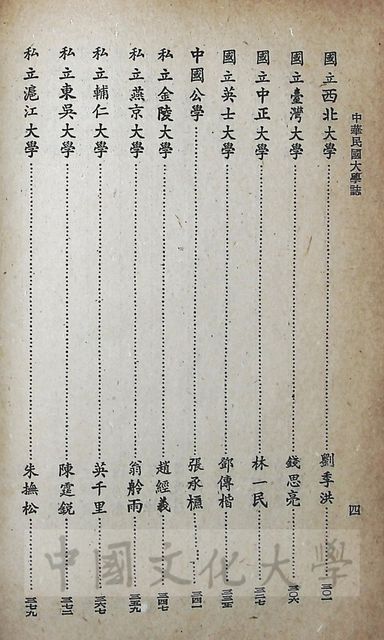 中華民國大學誌
四
國立西北大學 劉季洪 三〇一
國立臺灣大學 錢思亮 三〇六
國立中正大學 林一民 三二七
國立英士大學 鄧傳楷 三三五
中國公學 張承槱 三四一
私立金陵大學 趙經羲 三四七
私立燕京大學 翁舲雨 三五九
私立輔仁大學 英千里 三六七
私立東吳大學 陳霆銳 三七三
私立滬江大學 朱撫松 三七九
中國文化大學